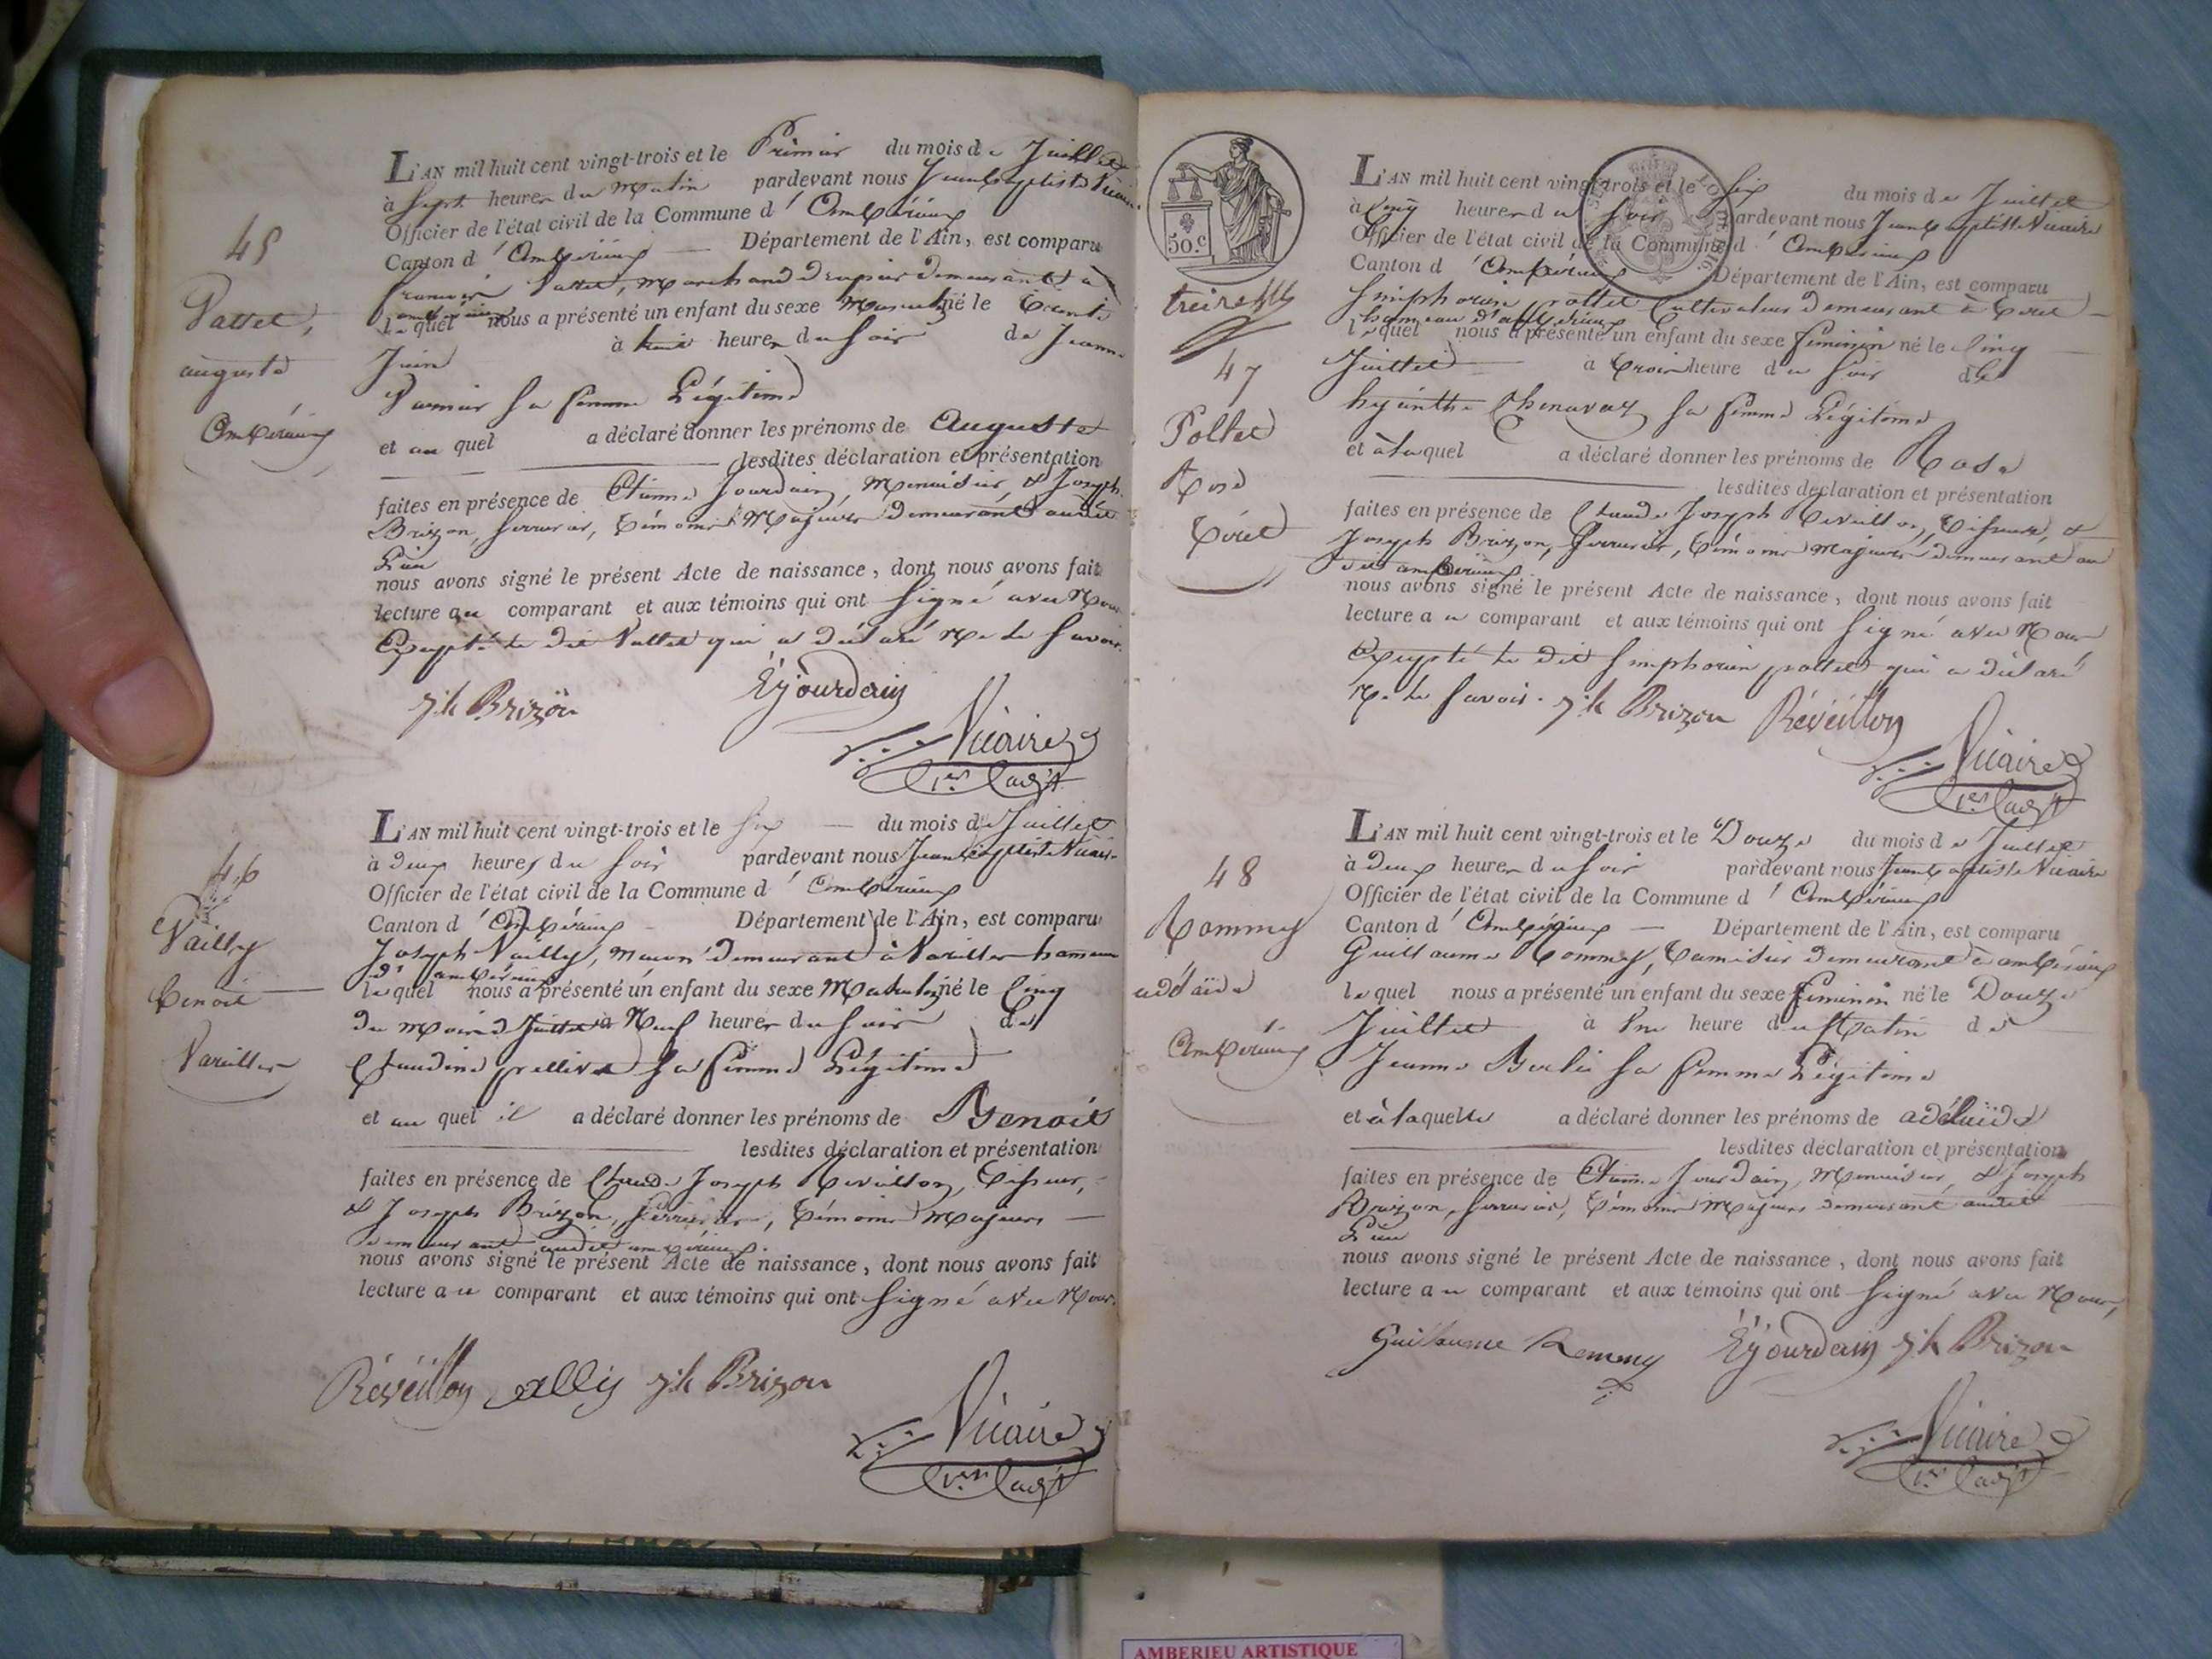 45
Vattet,
auguste
Ambérieux
L'AN mil huit cent vingt-trois et le Premier du mois de Juillet
à Sept heures du Matin pardevant nous Jean Baptiste Vicaire
Officier de l'état civil de la Commune d' Ambérieux
Canton d' Ambérieux Département de l'Ain, est comparu
François Vattet, Marchand drapier demeurant à
ambérieux
lequel nous a présenté un enfant du sexe Masculin né le trente
Juin à heures du Soir de Jeanne
sa femme Légitime
et au quel a déclaré donner les prénoms de Auguste
lesdites déclaration et présentation
faites en présence de Etienne Jourdain, Menuisier, & Joseph
Brizon, serrurier, témoins Majeurs demeurant audit
Lieu
nous avons signé le présent Acte de naissance, dont nous avons fait
lecture au comparant et aux témoins qui ont Signé avec Nous
Excepté le dit Vattet qui a déclaré Ne le Savoir.
jh Brizon Ejourdain
Vicaire
1er adjt
46
Vailly
benoit
Vareilles
L'AN mil huit cent vingt-trois et le Six du mois de Juillet
à deux heures du Soir pardevant nous Jean baptiste Vicaire
Officier de l'état civil de la Commune d' Ambérieux
Canton d' Ambérieux Département de l'Ain, est comparu
Joseph Vailly, Maçon demeurant à Vareilles hameau
d'ambérieux
lequel nous a présenté un enfant du sexe Masculin né le Cinq
du Mois d Juillet à Neuf heures du Soir de
Claudine sa femme Légitime
et au quel il a déclaré donner les prénoms de Benoit
lesdites déclaration et présentation
faites en présence de Claude Joseph Reveillon, Tisseur,
& Joseph Brizon, serrurier, témoins Majeurs
demeurant audit ambérieux.
nous avons signé le présent Acte de naissance, dont nous avons fait
lecture au comparant et aux témoins qui ont Signé avec Nous.
Réveillon jh Brizon
Vicaire
1er adjt
50.c
47
Pottet
Rose
Tiret
L'AN mil huit cent vingt-trois et le Six du mois de Juillet
à Cinq heures du Soir pardevant nous Jean baptiste Vicaire
Officier de l'état civil de la Commune d' Ambérieux
Canton d' Ambérieux Département de l'Ain, est comparu
Simphorien pottet Cultivateur demeurant à tiret
hameau d'ambérieux
lequel nous a présenté un enfant du sexe féminin né le Cinq
Juillet à trois heure du Soir de
hyacinthe Chenavaz sa femme Légitime
et à laquel a déclaré donner les prénoms de Rose
lesdites declaration et présentation
faites en présence de Claude Joseph Reveillon, Tisseur, &
Joseph Brizon, serrurier, témoins Majeurs demeurant au
dit ambérieux
nous avons signé le présent Acte de naissance, dont nous avons fait
lecture au comparant et aux témoins qui ont Signé avec Nous
Excepté le dit Simphorien pottet qui a déclaré
Ne le Savoir. jh Brizon Réveillon
Vicaire
1er adjt
48
Rommy
adélaïde
Ambérieux
L'AN mil huit cent vingt-trois et le Douze du mois de Juillet
à deux heures du Soir pardevant nous Jean baptiste Vicaire
Officier de l'état civil de la Commune d' Ambérieux
Canton d' Ambérieux Département de l'Ain, est comparu
Guillaume Rommy, tamisier demeurant à ambérieux
lequel nous a présenté un enfant du sexe féminin né le Douze
Juillet à Une heure du Matin de
Jeanne sa femme Légitime
et à laquelle a déclaré donner les prénoms de adélaïde
lesdites déclaration et présentation
faites en présence de Etienne Jourdain, Menuisier, & Joseph
Brizon, serrurier, témoins Majeurs demeurant audit
Lieu
nous avons signé le présent Acte de naissance, dont nous avons fait
lecture au comparant et aux témoins qui ont Signé avec Nous,
Guillaume Rommy Ejourdain jh Brizon
Vicaire
1er adjt
AMBERIEU ARTISTIQUE